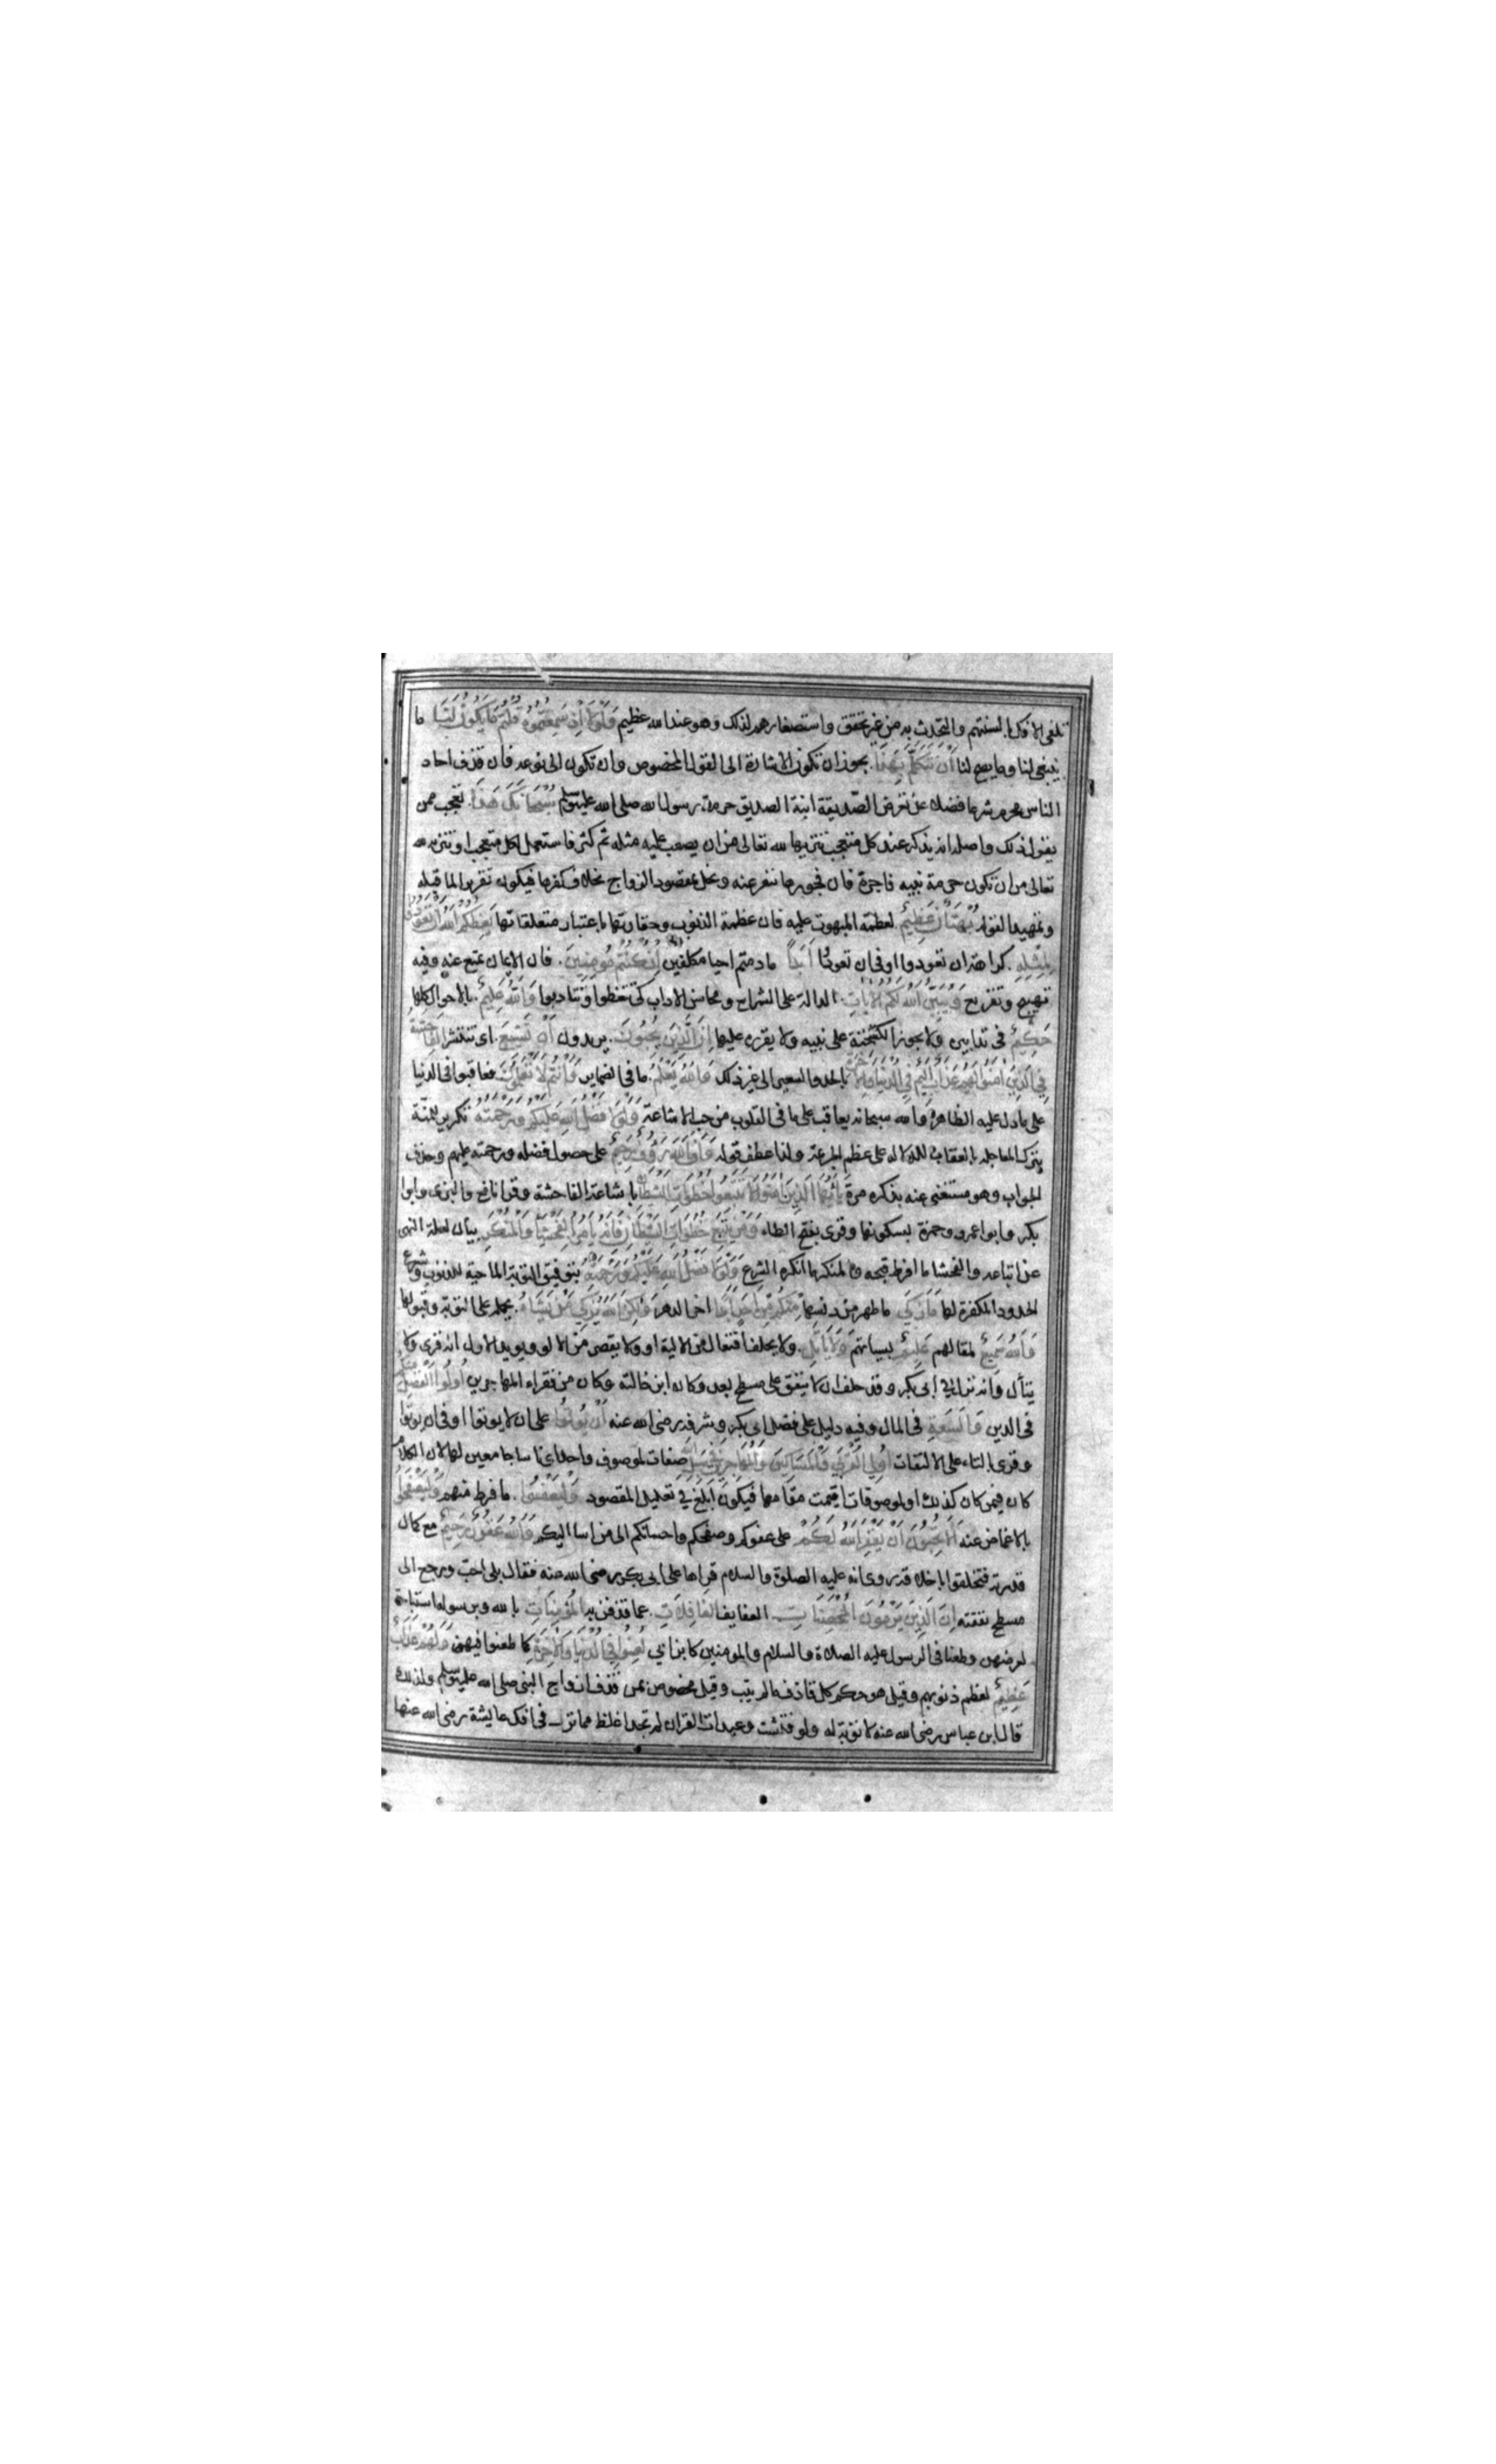 تلقى الافك بالسنتهم والتحدث به من غير تحقق واستصغارهم لذلك وهو عند الله عظيم وَلَوْلَا اِذْ سَمِعْتُمُوهُ قُلْتُمْ مَا يَكُونُ لَنَا ما
ينبغى لنا وما يصح لنا اَنْ نَتَكَلَّمَ بِهَذَا يجوزان تكون الاشارة الى القول المخصوص وان تكون الى نوعه فان قذف احاد
الناس محرم شرعا فضلا عن تعرض الصديقة ابنة الصديق حرمة رسول الله صلى الله عليه وسلم سُبْحَانَكَ هَذَا تعجب ممن
يقول ذلك واصله انه يذكر عند كل متعجب تنزيها لله تعالى من ان يصعب عليه مثله ثم كثر فاستعمل لكل متعجب او تنزيه لله
تعالى من ان تكون حرمة نبيه فاجرة فان فجورها تنفر عنه ويخل بمقصود الزواج بخلاف كفرها فيكون تقريرا لما قبله
وتمهيدا لقوله بُهْتَانٌ عَظِيمٌ لعظمة المبهوت عليه فان عظمة الذنوب وحقارتها باعتبار متعلقاتها يَعِظُكُمُ اللَّهُ اَنْ تَعُودُوا
لِمِثْلِهِ كراهة ان تعودوا او فى ان تعودوا اَبَدًا ما دمتم احيا مكلفين اِنْ كُنْتُمْ مُؤْمِنِينَ فان الايمان يمنع عنه وفيه
تهييج وتقريع وَيُبَيِّنُ اللَّهُ لَكُمُ الْاٰيَاتِ الدالة على الشرايع ومحاسن الاداب كى تتعظوا وتتادبوا وَاللَّهُ عَلِيمٌ بالاحوال كلها
حَكِيمٌ فى تدابيره ولا يجوز الكشخنة على نبيه ولا يقرره عليها اِنَّ الَّذِينَ يُحِبُّونَ يريدون اَنْ تَشِيعَ اى تنتشر الْفَاحِشَةُ
فِي الَّذِينَ اٰمَنُوا لَهُمْ عَذَابٌ اَلِيمٌ فِي الدُّنْيَا وَالْاٰخِرَةِ بالحد والسعير الى غير ذلك وَاللَّهُ يَعْلَمُ ما فى الضماير وَاَنْتُمْ لَا تَعْلَمُونَ فعاقبوا فى الدنيا
على ما دل عليه الظاهر والله سبحانه يعاقب على ما فى القلوب من حب الاشاعة وَلَوْلَا فَضْلُ اللَّهِ عَلَيْكُمْ وَرَحْمَتُهُ تكرير للمنة
بترك المعاجلة بالعقاب للدلالة على عظم الجرعة ولذا عطف قوله وَاَنَّ اللَّهَ رَؤُفٌ رَحِيمٌ على حصول فضله ورحمته عليهم وحذف
الجواب وهو مستغنى عنه بذكره مرة يَا اَيُّهَا الَّذِينَ اٰمَنُوا لَا تَتَّبِعُوا خُطُوَاتِ الشَّيْطَانِ باشاعة الفاحشة وقرا نافع والبزى وابوا
بكر وابو اعمرو وحمزة بسكونها وقرى بفتح الطاء وَمَنْ يَتَّبِعْ خُطُوَاتِ الشَّيْطَانِ فَاِنَّهُ يَاْمُرُ بِالْفَحْشَاءِ وَالْمُنْكَرِ بيان لعلة النهى
عن اتباعه والفحشا ما افرط قبحه والمنكر ما انكره الشرع وَلَوْلَا فَضْلُ اللَّهِ عَلَيْكُمْ وَرَحْمَتُهُ بتوفيق التوبة الماحية للذنوب وشرع
الحدود المكفرة لها مَا زَكَى ما طهر من دنسها مِنْكُمْ مِنْ اَحَدٍ اَبَدًا اخر الدهر وَلَكِنَّ اللَّهَ يُزَكِّي مَنْ يَشَاءُ بحمله على التوبة وقبولها
وَاللَّهُ سَمِيعٌ لمقالهم عَلِيمٌ بنياتهم وَلَا يَاْتَلِ ولا يحلف افتعال من الالية او ولا يقصر من الالو ويويد الاول انه قرى ولا
يتأل وانه نزل فى ابى بكر وقد حلف ان لا ينفق على مسطح بعد وكان ابن خالته وكان من فقراء المهاجرين اُولُوا الْفَضْلِ مِنْكُمْ
فى الدين وَالسَّعَةِ فى المال وفيه دليل على فضل ابى بكر وشرفه رضى الله عنه اَنْ يُؤْتُوا على ان لا يوتوا او فى ان يوتوا
وقرى بالتاء على الالتفات اُولِي الْقُرْبَى وَالْمَسَاكِينَ وَالْمُهَاجِرِينَ فِي سَبِيلِ اللَّهِ صفات لموصوف واحد اى ناسا جامعين لها لان الكلام
كان فيمن كان كذلك او لموصوفات اقيمت مقامها فيكون ابلغ فى تعليل المقصود وَلْيَعْفُوا ما فرط منهم وَلْيَصْفَحُوا
بالاغماض عنه اَلَا تُحِبُّونَ اَنْ يَغْفِرَ اللَّهُ لَكُمْ على عفوكم وصفحكم واحسانكم الى من اسا اليكم وَاللَّهُ غَفُورٌ رَحِيمٌ مع كمال
قدرته فتخلقوا باخلاقه روى انه عليه الصلوة والسلام قراها على ابى بكر رضى الله عنه فقال بلى احب ورجع الى
مسطح نفقته اِنَّ الَّذِينَ يَرْمُونَ الْمُحْصَنَاتِ العفايف الْغَافِلَاتِ عما قذفن به الْمُؤْمِنَاتِ بالله وبرسوله استباحة
لعرضهن وطعنا فى الرسول عليه الصلاة والسلام والمومنين كابن ابي لُعِنُوا فِي الدُّنْيَا وَالْاٰخِرَةِ كما طعنوا فيهن وَلَهُمْ عَذَابٌ
عَظِيمٌ لعظم ذنوبهم وقيل هو حكم كل قاذف ما لم يتب وقيل مخصوص بمن قذف ازواج النبى صلى الله عليه وسلم ولذلك
قال ابن عباس رضى الله عنه لا توبة له ولو فتشت وعيدات القران لم تجد اغلظ مما نزل فى افك عايشة رضى الله عنها